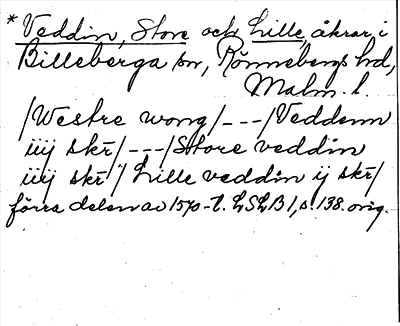 * Veddin, Store och Lille, åkrar i
Billeberga sn, Rönnebergs hd,
Malm. l.
/Westre wong/---/Veddenn
iiij skr̄/---/Store veddin
iiij skr̄ // Lille veddin ij skr̄/
förra delen av 1570-t. LSLB 1, s. 138. orig.